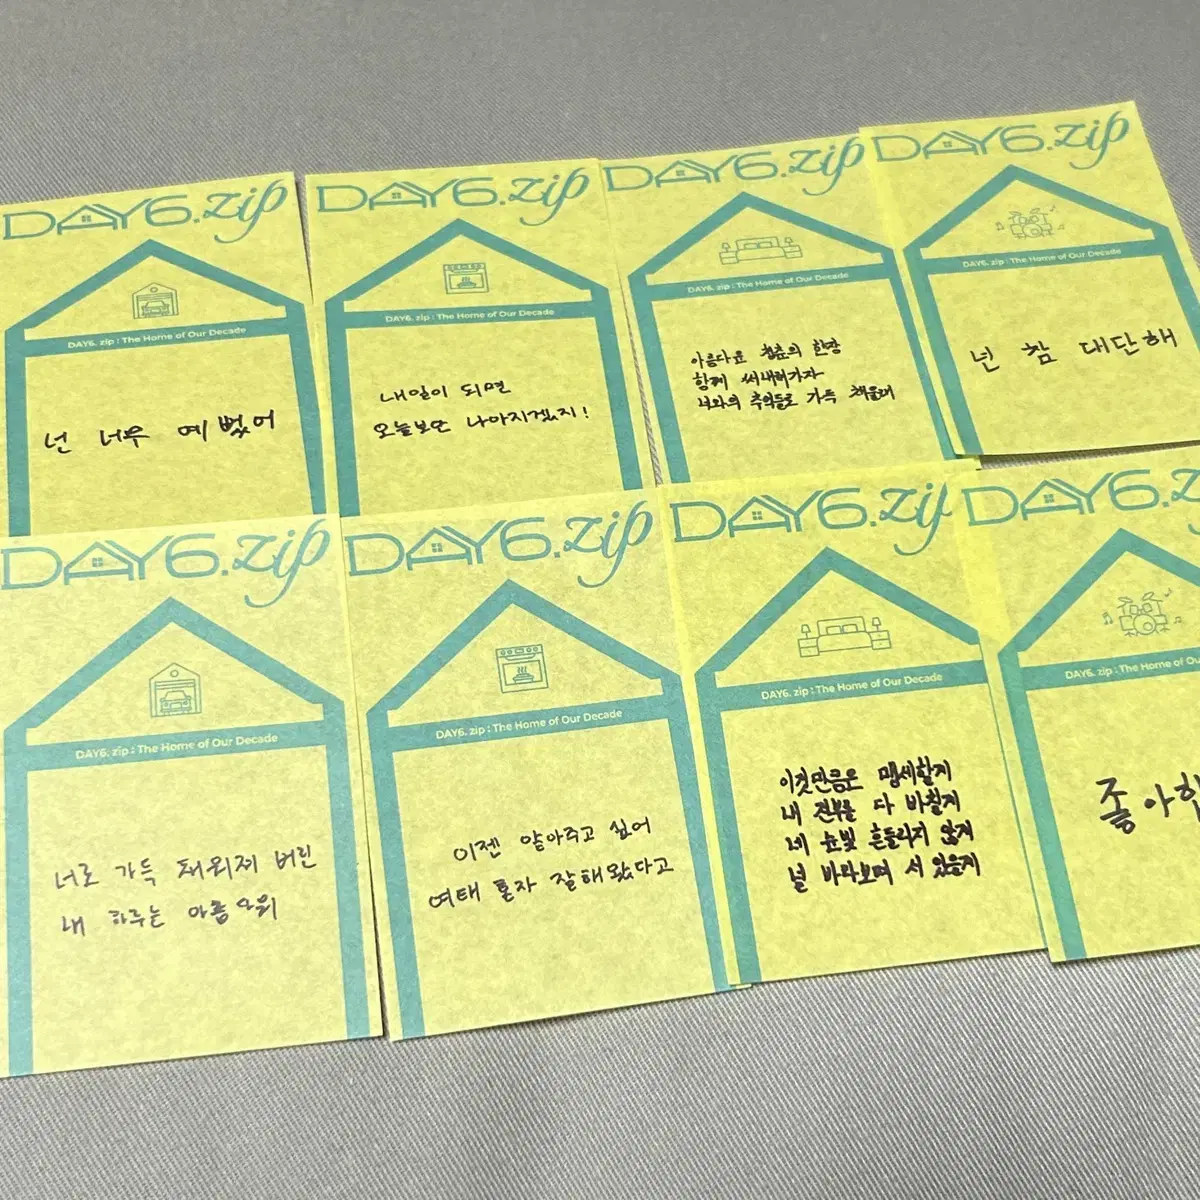 DAY6.zip
DAY6. zip : The Home of Our Decade
넌 너무 예뻤어
DAY6.zip
DAY6. zip : The Home of Our Decade
내일이 되면
오늘보단 나아지겠지!
DAY6.zip
DAY6. zip : The Home of Our Decade
아름다운 청춘의 한장
함께 써내려가자
너와의 추억들로 가득 채울래
DAY6.zip
DAY6. zip : The Home of Our Decade
넌 참 대단해
DAY6.zip
DAY6. zip : The Home of Our Decade
너로 가득 채워져 버린
내 하루는 아름다워
DAY6.zip
DAY6. zip : The Home of Our Decade
이젠 알아주고 싶어
여태 혼자 잘해왔다고
DAY6.zip
DAY6. zip : The Home of Our Decade
이것만큼은 맹세할게
내 전부를 다 바칠게
네 눈빛 흔들리지 않게
널 바라보며 서 있을게
DAY6.z
DAY6. zip : The Home of Ou
좋아합